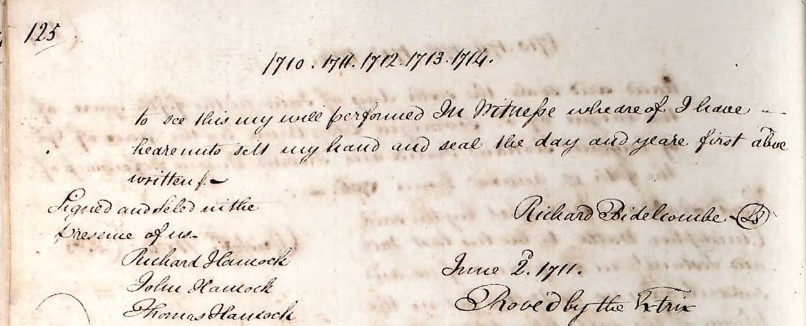 125
1710. 1711. 1712. 1713. 1714.
to see this my will performed In Witnesse wheareof I have
heareunto sett my hand and seal the day and yeare first above
written
Signed and Seled in the
presence of us
Richard Hancock
John Hancock
Thomas Hancock
Richard Bidelcombe
June 2d. 1711.
Proved by the Extrix